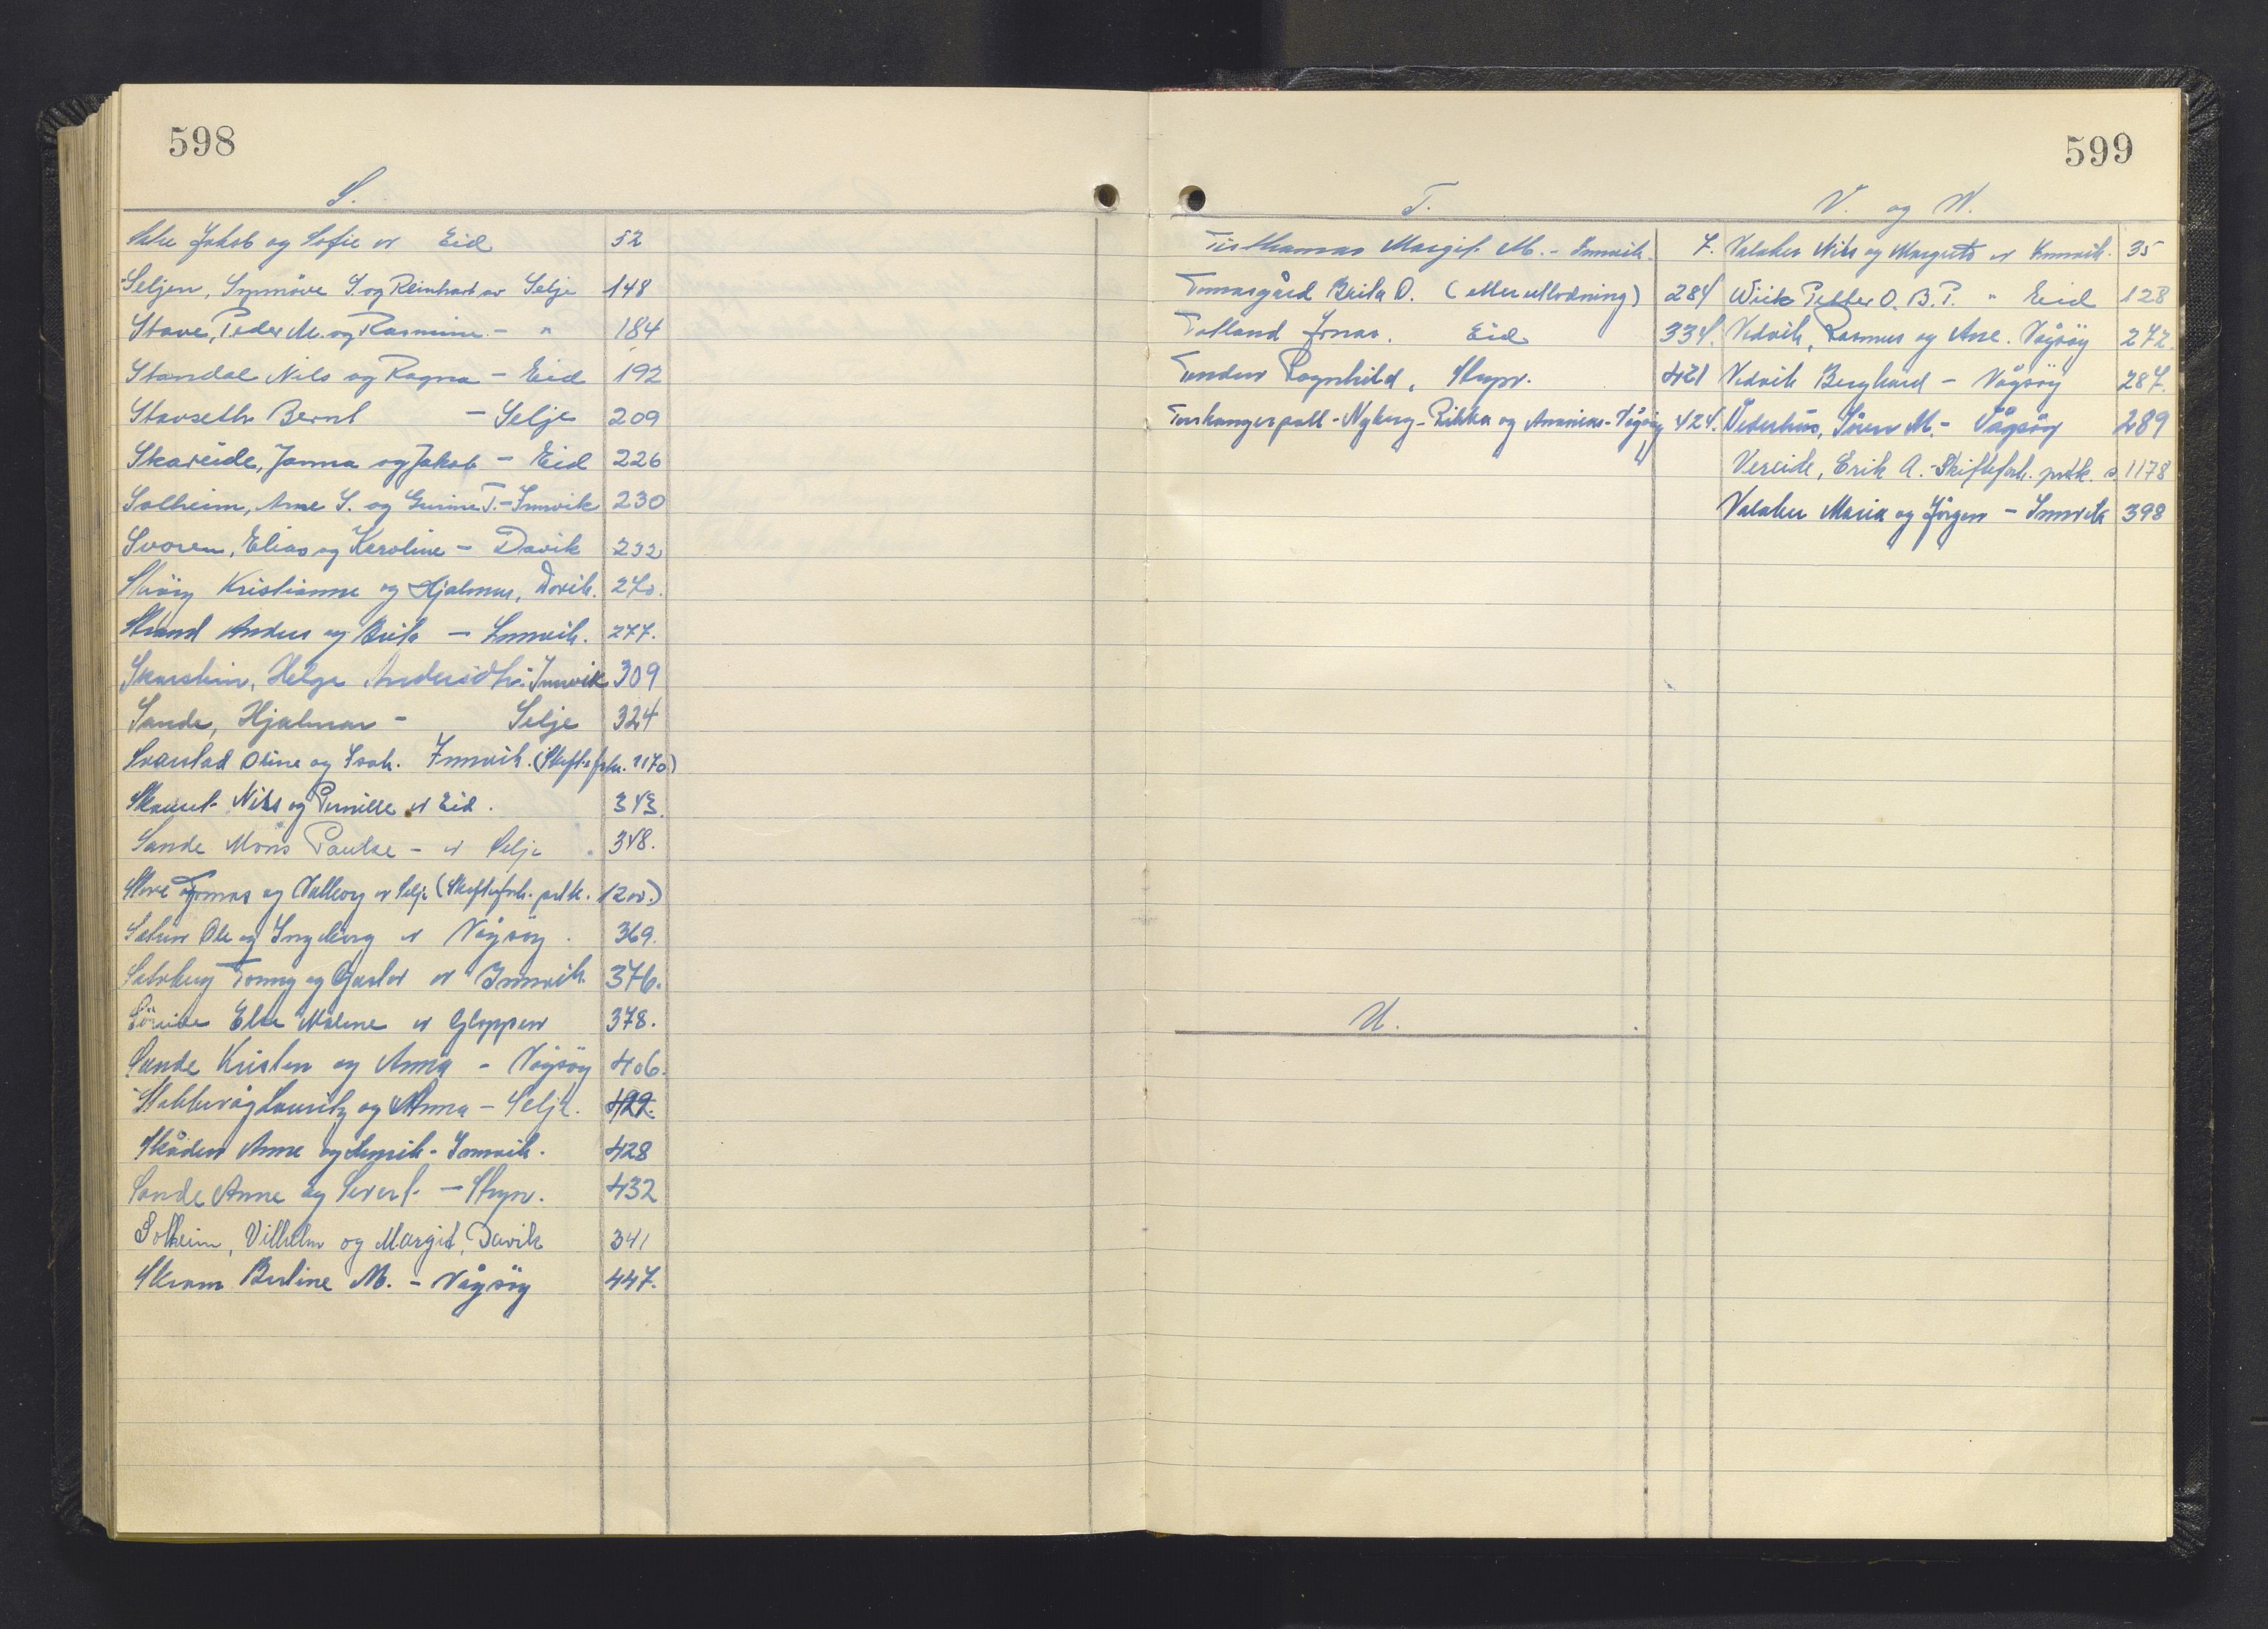 598
S.
Jakob og Sofie av Eid 52
Seljen, Synnöve S. og Reinhart av Selje 148
Stave, Peder M. og Rasmine - " 184
Standal Nils og Ragna - Eid 192
Stavseth Bernt - Selje 209
Skareide, Janna og Jakob - Eid 226
Solheim, Arne S. og Gurine T. - Innvik 230
Svoren, Elias og Karoline - Davik 232
Kristianne og Hjalmar, Davik. 270.
Strand Anders og Brita - Innvik. 277.
Skarstein, Helge Innvik 309
Sande, Hjalmar - Selje 324
Svarstad Oline og Isak. Innvik. (Skiftefork. 1170)
Nils og Pernille av Eid. 343.
Sande Mons Paulse - av Selje 348.
Tomas og Valborg av Selje (Skiftefork. potk. 1200.)
Ole og Ingeborg av Vågsöy. 369.
Tommy og av Innvik. 376.
Söreide Else Malene av Gloppen 378.
Sande Kristen og Anna - Vågsöy 406.
Stokkevåg Lauritz og Anna - Selje. 422.
Skåden Anne og Henrik - Innvik. 428
Sande Anne og Sivert - Stryn. 432
Solheim, Vilhelm og Margit, Davik 341
Skram Berline M. - Vågsöy 447.
599
T.
Tisthamar Margit M. - Innvik. 7.
Tomasgård Brita O. (etter utlodning) 284
Totland Jonas. Eid 334.
Ragnhild, Stryn. 421
Torskangerpoll - Nyberg - Rikka og Ananias - Vågsöy 424.
U.
V. og W.
Valaker Nils og Margrete av Innvik. 35
Wiik Petter O. B. P. " Eid 128
Vedvik, Rasmus og Ane. Vågsöy 272.
Vedvik Berghard - Vågsöy 287.
Vederhus, Sören M. - Vågsöy 289
Vereide, Erik A. - Skiftefork. potk. s. 1178
Valaker Maria og Jörgen - Innvik 398